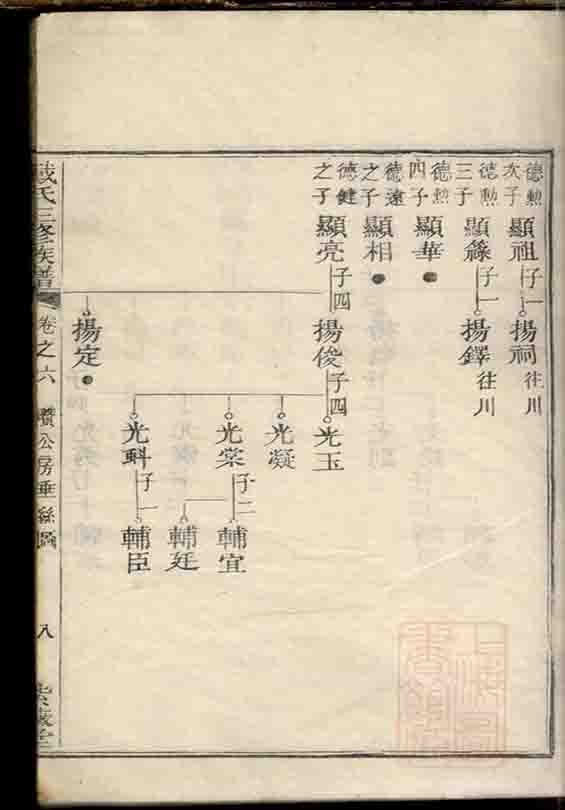 德勲次子
顯祖
子一
揚祠
往川
德勲三子
顯籙
子一
揚鐸
往川
德勲四子
顯華
德遠之子
顯相
德健之子
顯亮
子四
揚俊
子四
揚定
光玉
光凝
光棠
子二
光斛
子一
輔宣
輔廷
輔臣
氏三修族譜
卷之六
公房垂絲圖
八